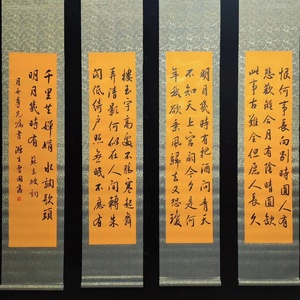 明月幾時有把酒問青天
不知天上宮闕今夕是何
年我欲乘風歸去又恐瓊
樓玉宇高處不勝寒起舞
弄清影何似在人間轉朱
閣低綺戶照無眠不應有
恨何事長向別時圓人有
悲歡離合月有陰晴圓缺
此事古難全但願人長久
千里共嬋娟 水調歌頭
明月幾時有 蘇東坡詞